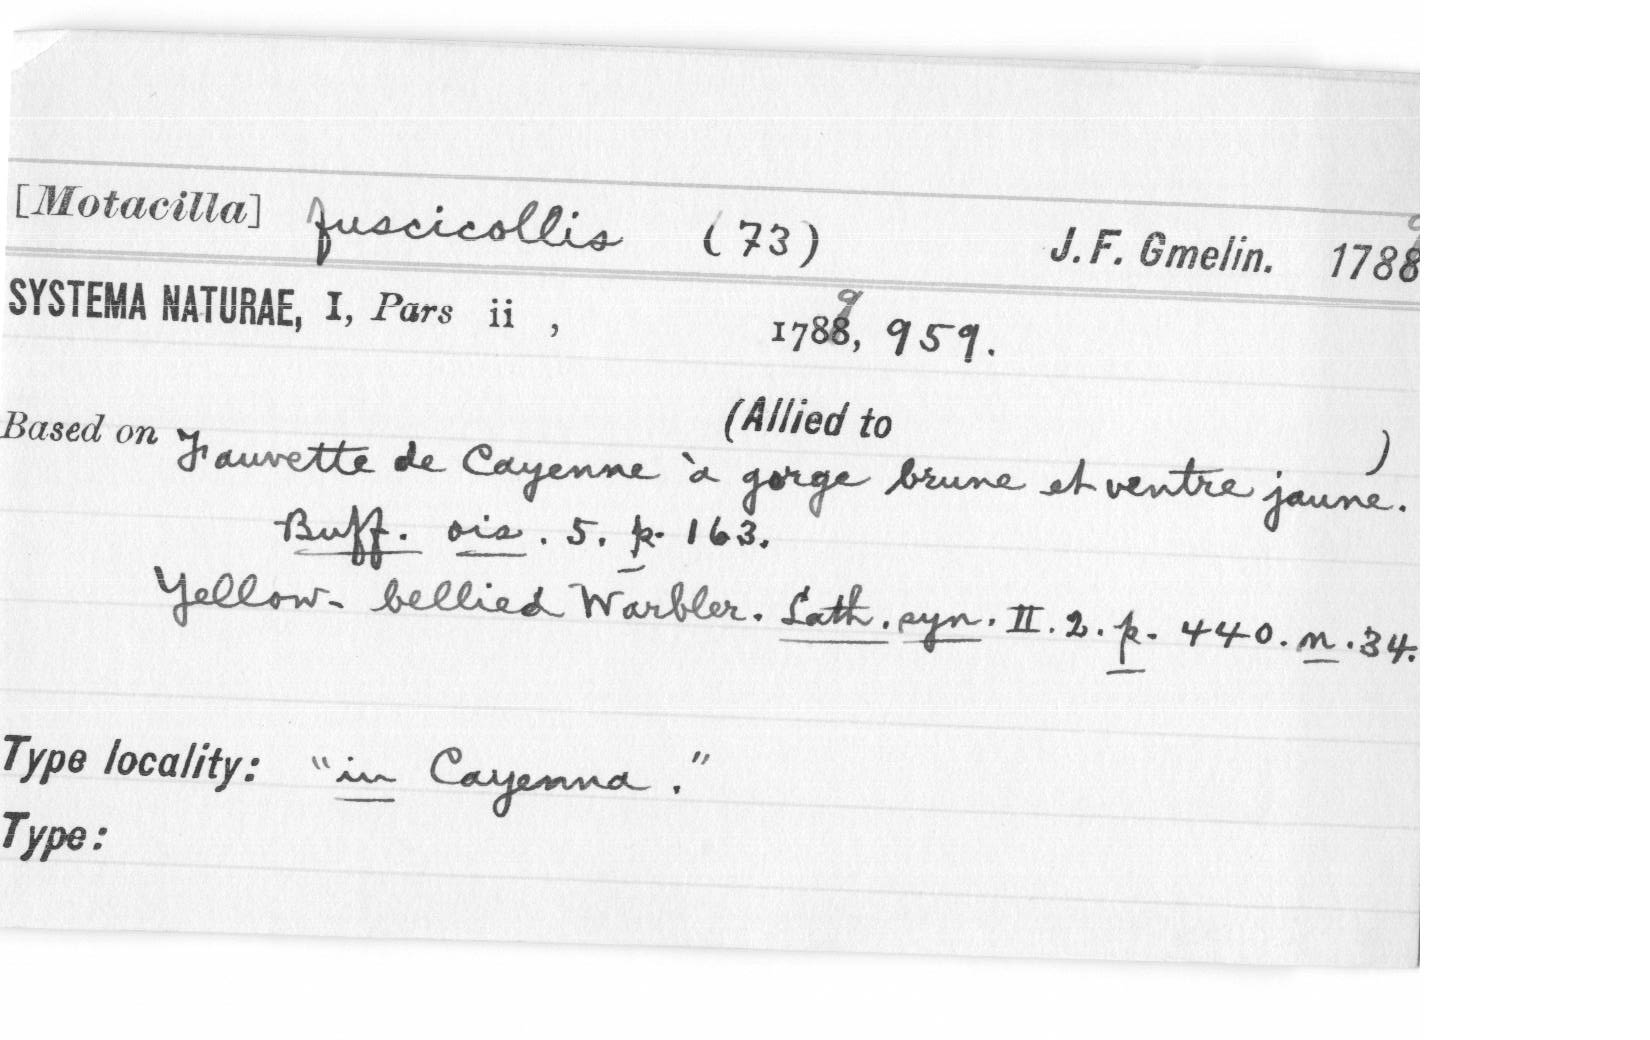 [Motacilla] fuscicollis (73) J. F. Gmelin. 1788 9
SYSTEMA NATURAE, I, Pars ii , 1788 9, 959.
(Allied to )
Based on Fauvette de Cayenne à gorge brune et ventre jaune.
Buff. ois. 5. p. 163.
Yellow-bellied Warbler. Lath. syn. II. 2. p. 440. n. 34.
Type locality: "in Cayenna."
Type: